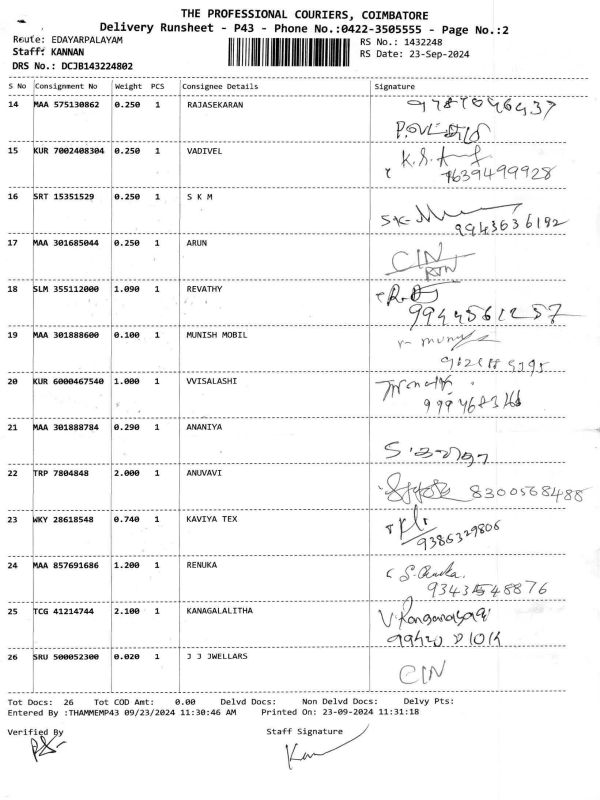 THE PROFESSIONAL COURIERS, COIMBATORE
Delivery Runsheet - P43 - Phone No.:0422-3505555 - Page No.:2
Route: EDAYARPALAYAM RS No.: 1432248
Staff: KANNAN RS Date: 23-Sep-2024
DRS No.: DCJB143224802
S No Consignment No Weight PCS Consignee Details Signature
14 MAA 575130862 0.250 1 RAJASEKARAN
15 KUR 7002408304 0.250 1 VADIVEL
K.S.
7639499928
16 SRT 15351529 0.250 1 S K M
9943636192
17 MAA 301685044 0.250 1 ARUN
CIN
18 SLM 355112000 1.090 1 REVATHY
9944561257
19 MAA 301888600 0.100 1 MUNISH MOBIL
20 KUR 6000467540 1.000 1 VVISALASHI
21 MAA 301888784 0.290 1 ANANIYA
22 TRP 7804848 2.000 1 ANUVAVI
8300568488
23 WKY 28618548 0.740 1 KAVIYA TEX
9386329806
24 MAA 857691686 1.200 1 RENUKA
25 TCG 41214744 2.100 1 KANAGALALITHA
26 SRU 500052300 0.020 1 J J JWELLARS
CIN
Tot Docs: 26 Tot COD Amt: 0.00 Delvd Docs: Non Delvd Docs: Delvy Pts:
Entered By :THAMMEMP43 09/23/2024 11:30:46 AM Printed On: 23-09-2024 11:31:18
Verified By Staff Signature